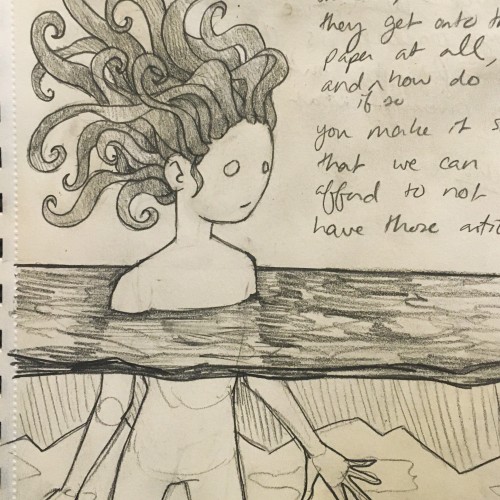 they get onto
paper at all,
and how do
if so
you make it
that we can
afford to not
have those